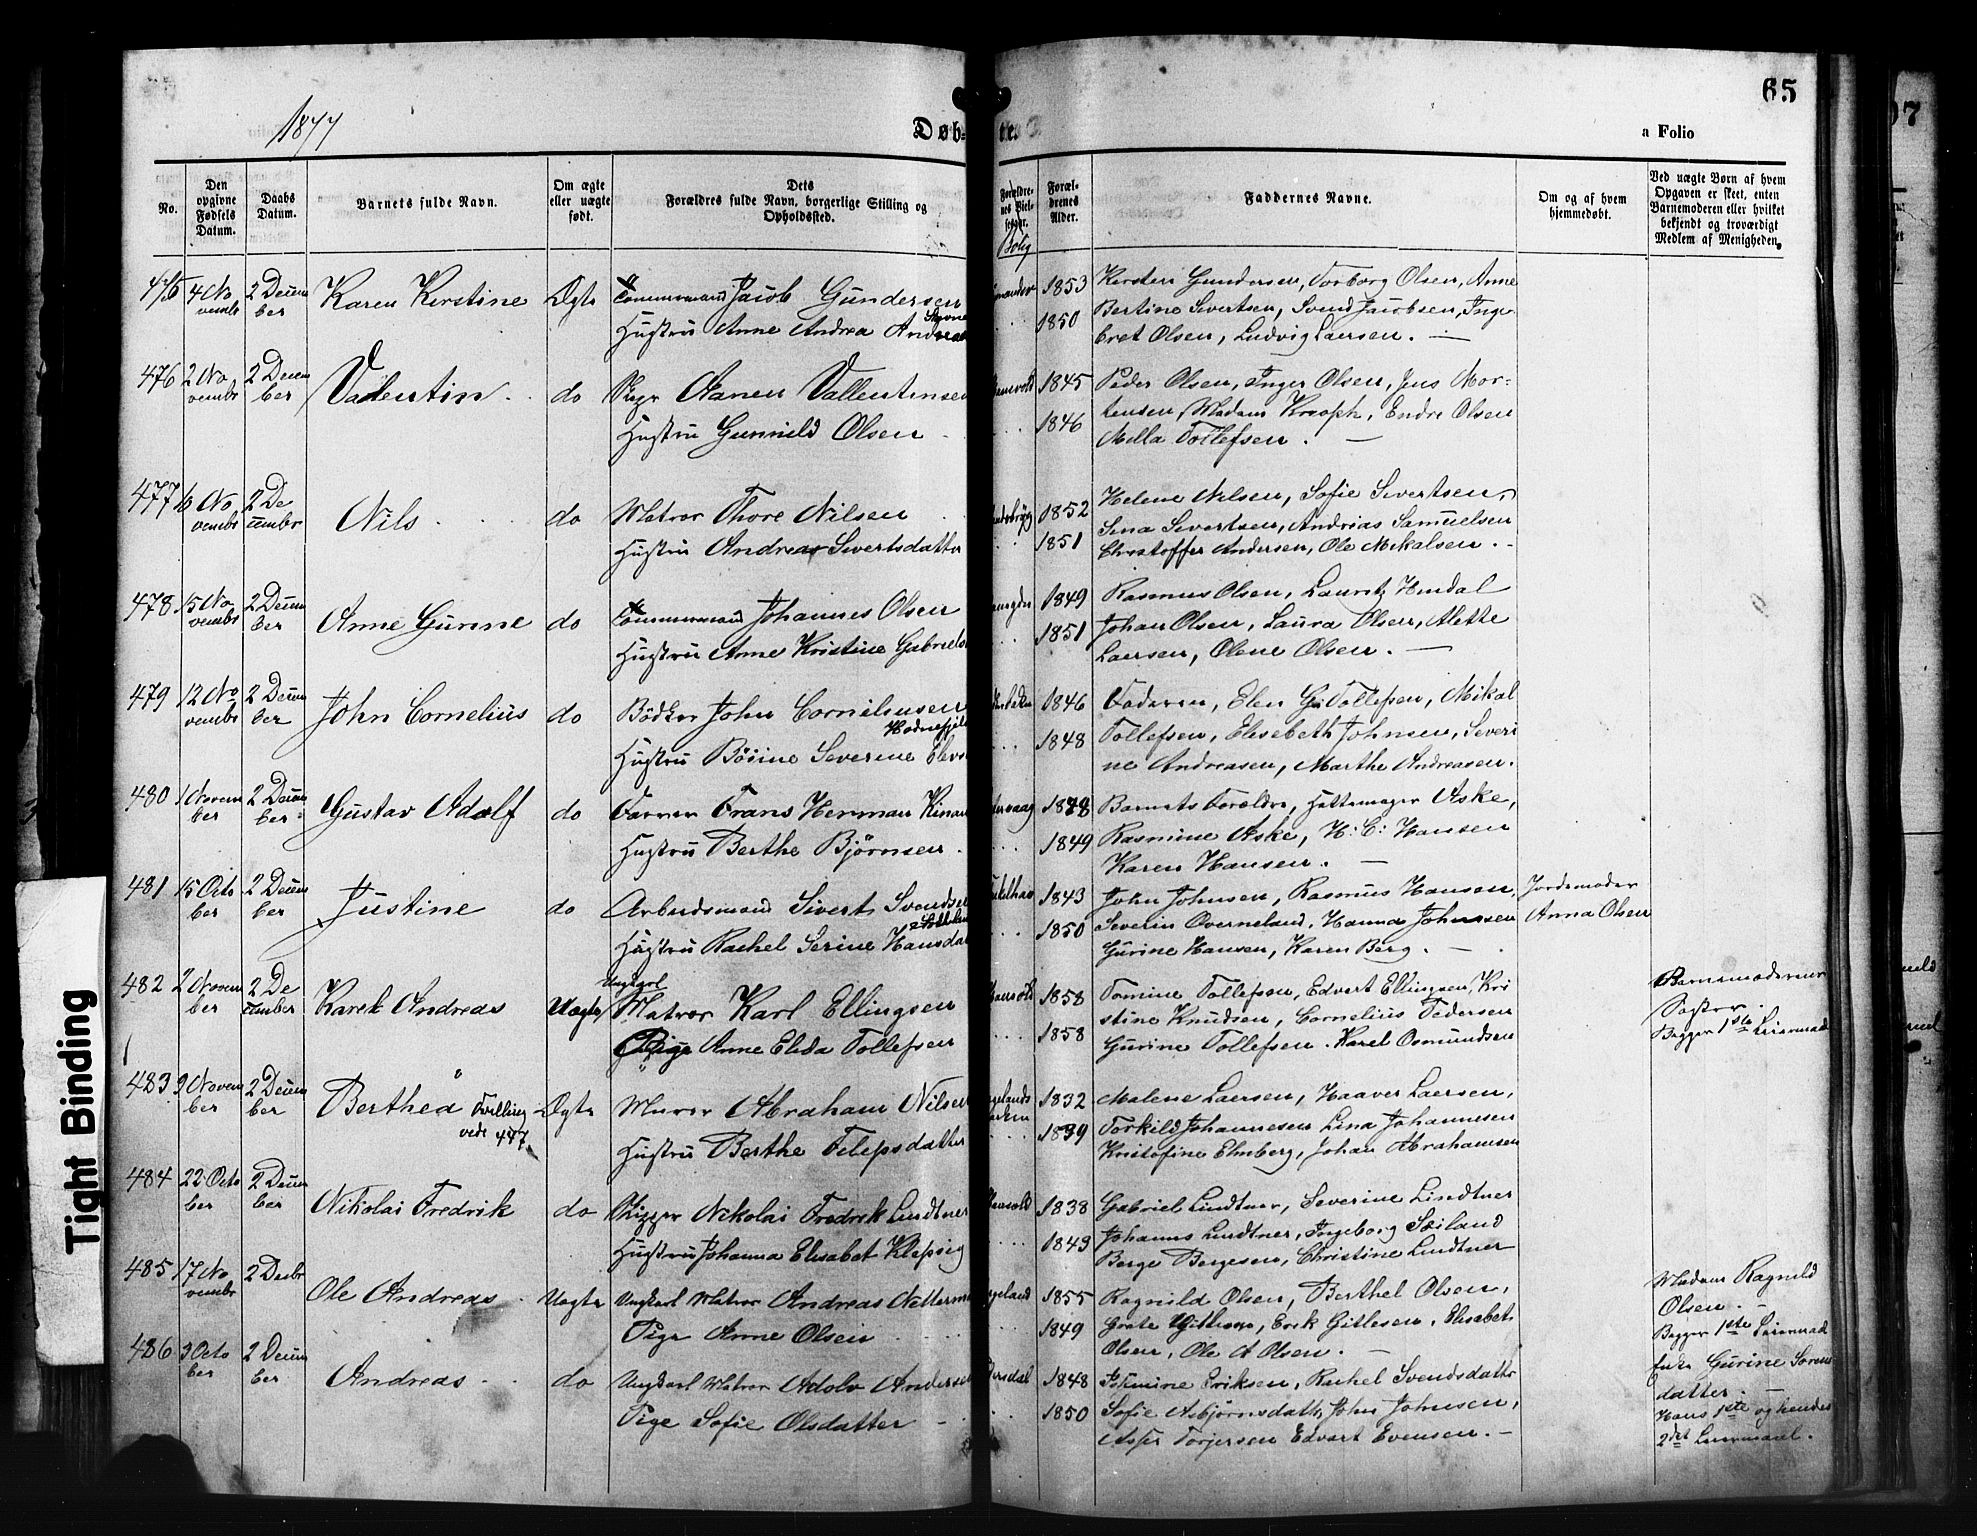 65
1877
Døb-
te.
a Folio
No.
Den opgivne Fødsels Datum.
Daabs Datum.
Barnets fulde Navn.
Om ægte eller uægte født.
Dets Forældres fulde Navn, borgerlige Stilling og Opholdssted.
Forældrenes Alder.
Faddernes Navne.
Om og af hvem hjemmedøbt.
Ved uægte Børn af hvem Opgaven er skeet, enten Barnemoderen eller hvilket bekjendt og troværdigt Medlem af Menigheden.
Bolig
475 4 November 2 December Karen Kirstine Ægte Tømmermand Jacob Gundersen 1853 Kirsten Gundersen, Torborg Olsen, Anne
Hustru Anne Andrea 1850 Bertine Sivertsen, Svend Jacobsen, Inge-
bret Olsen, Ludvig Laersen.
476 2 November 2 December Valentin do Aanen Vallentinsen 1845 Peder Olsen, Inger Olsen, Jens Mor-
Hustru Gunnild Olsen 1846 tensen, Madam Krooph, Endre Olsen
Mella Tollefsen.
477 10 November 2 December Nils do Matros Thore Nilsen 1852 Helene Nilsen, Sofie Sivertsen,
Hustru Andrea Sivertsdatter 1851 Sina Sivertsen, Andrias Samuelsen
Christoffer Andersen, Ole Mikalsen.
478 15 November 2 December Anne Gunne do Tømmermand Johannes Olsen 1849 Rasmus Olsen, Lauritz Hendal
Hustru Anne Kristine 1851 Johan Olsen, Laura Olsen, Alette
Laersen, Olene Olsen.
479 12 November 2 December John Cornelius do Bødker John Corneliusen 1846 Faderen, Elen G. Tollefsen, Mikal
Hustru Bosine Severine 1848 Tollefsen, Elisebeth Johnsen, Severi
ne Andreasen, Marthe Andreasen.
480 1 November 2 December Gustav Adolf do Farver Frans Herman 1848 Barnets Forældre, Hattemager Aske,
Hustru Berthe Bjørnsen 1849 Rasmine Aske, H. C. Hansen
Karen Hansen.
481 15 October 2 December Justine do Arbeidsmand Sivert Svendsen 1843 John Johnsen, Rasmus Hansen, Jordemoder
Hustru Rachel Serine 1850 Severin Overneland, Hanna Johnsen Anna Olsen
Gurine Hansen, Karen Berg.
482 2 November 2 December Karel Andreas Uægte Ungkarl Matros Karl Ellingsen 1858 Tomine Tollefsen, Edvart Ellingsen, Kri Barnemoderens
Pige Anne Elida Tollefsen 1858 stine Knudsen, Cornelius Pedersen Søster.
Gurine Tollefsen. Karel Osmundsen Begges 1ste Leiermaal
483 9 November 2 December Berthea Tvilling vide 447 Ægte Murer Abraham Nilsen 1832 Malene Laersen, Haaver Laersen,
Hustru Berthe Filipsdatter 1839 Torkild Johannesen Lina Johannesen
Kristofine Elmberg, Johan Abrahamsen
484 22 October 2 December Nikolai Fredrik do Rigger Nikolai Fredrik Lindtner 1838 Gabriel Lindtner, Severine Lindtner
Hustru Johanna Elisabet Klepsig 1843 Johanns Lindtner, Ingeborg Soiland
Berge Bergesen, Christine Lindtner
485 17 November 2 Decbr Ole Andreas Uægte Ungkarl Matros Andreas 1855 Ragnild Olsen, Berthel Olsen, Madam Ragnild
Pige Anne Olsen 1849 Grete Gitlesen, Erik Gitlesen. Elisabet Olsen.
Olsen, Ole A Olsen. Begges 1ste Leiermaal
486 3 October 2 December Andreas do Ungkarl Matros Adolv Andersen 1848 Eriksen, Rachel Svendsdatter Enke Gurine Sørens
Pige Sofie Olsdatter 1850 Sofie Asbjørnsdatt, John Johnsen, datter.
Torjersen Edvart Evensen. Hans 1ste og hendes
2det Leiermaal.
Tight Binding